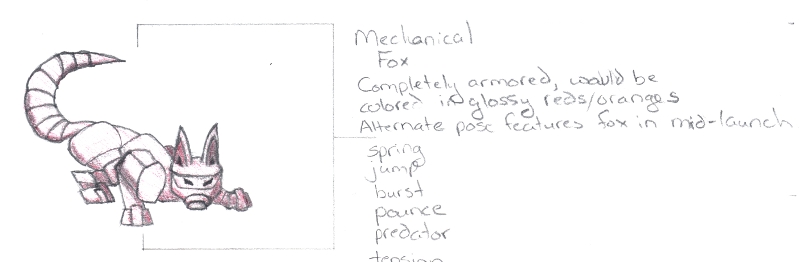 Mechanical
Fox
Completely armored, would be
colored in glossy reds/oranges
Alternate pose features fox in mid-launch
spring
jump
burst
pounce
predator
tension